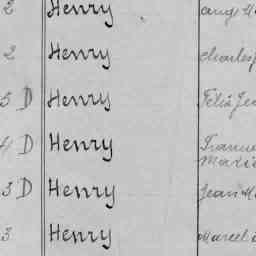 2 Henry
2 Henry Charles
5 D Henry Félix Je
4 D Henry
3 D Henry Jean M
3 Henry Marcel